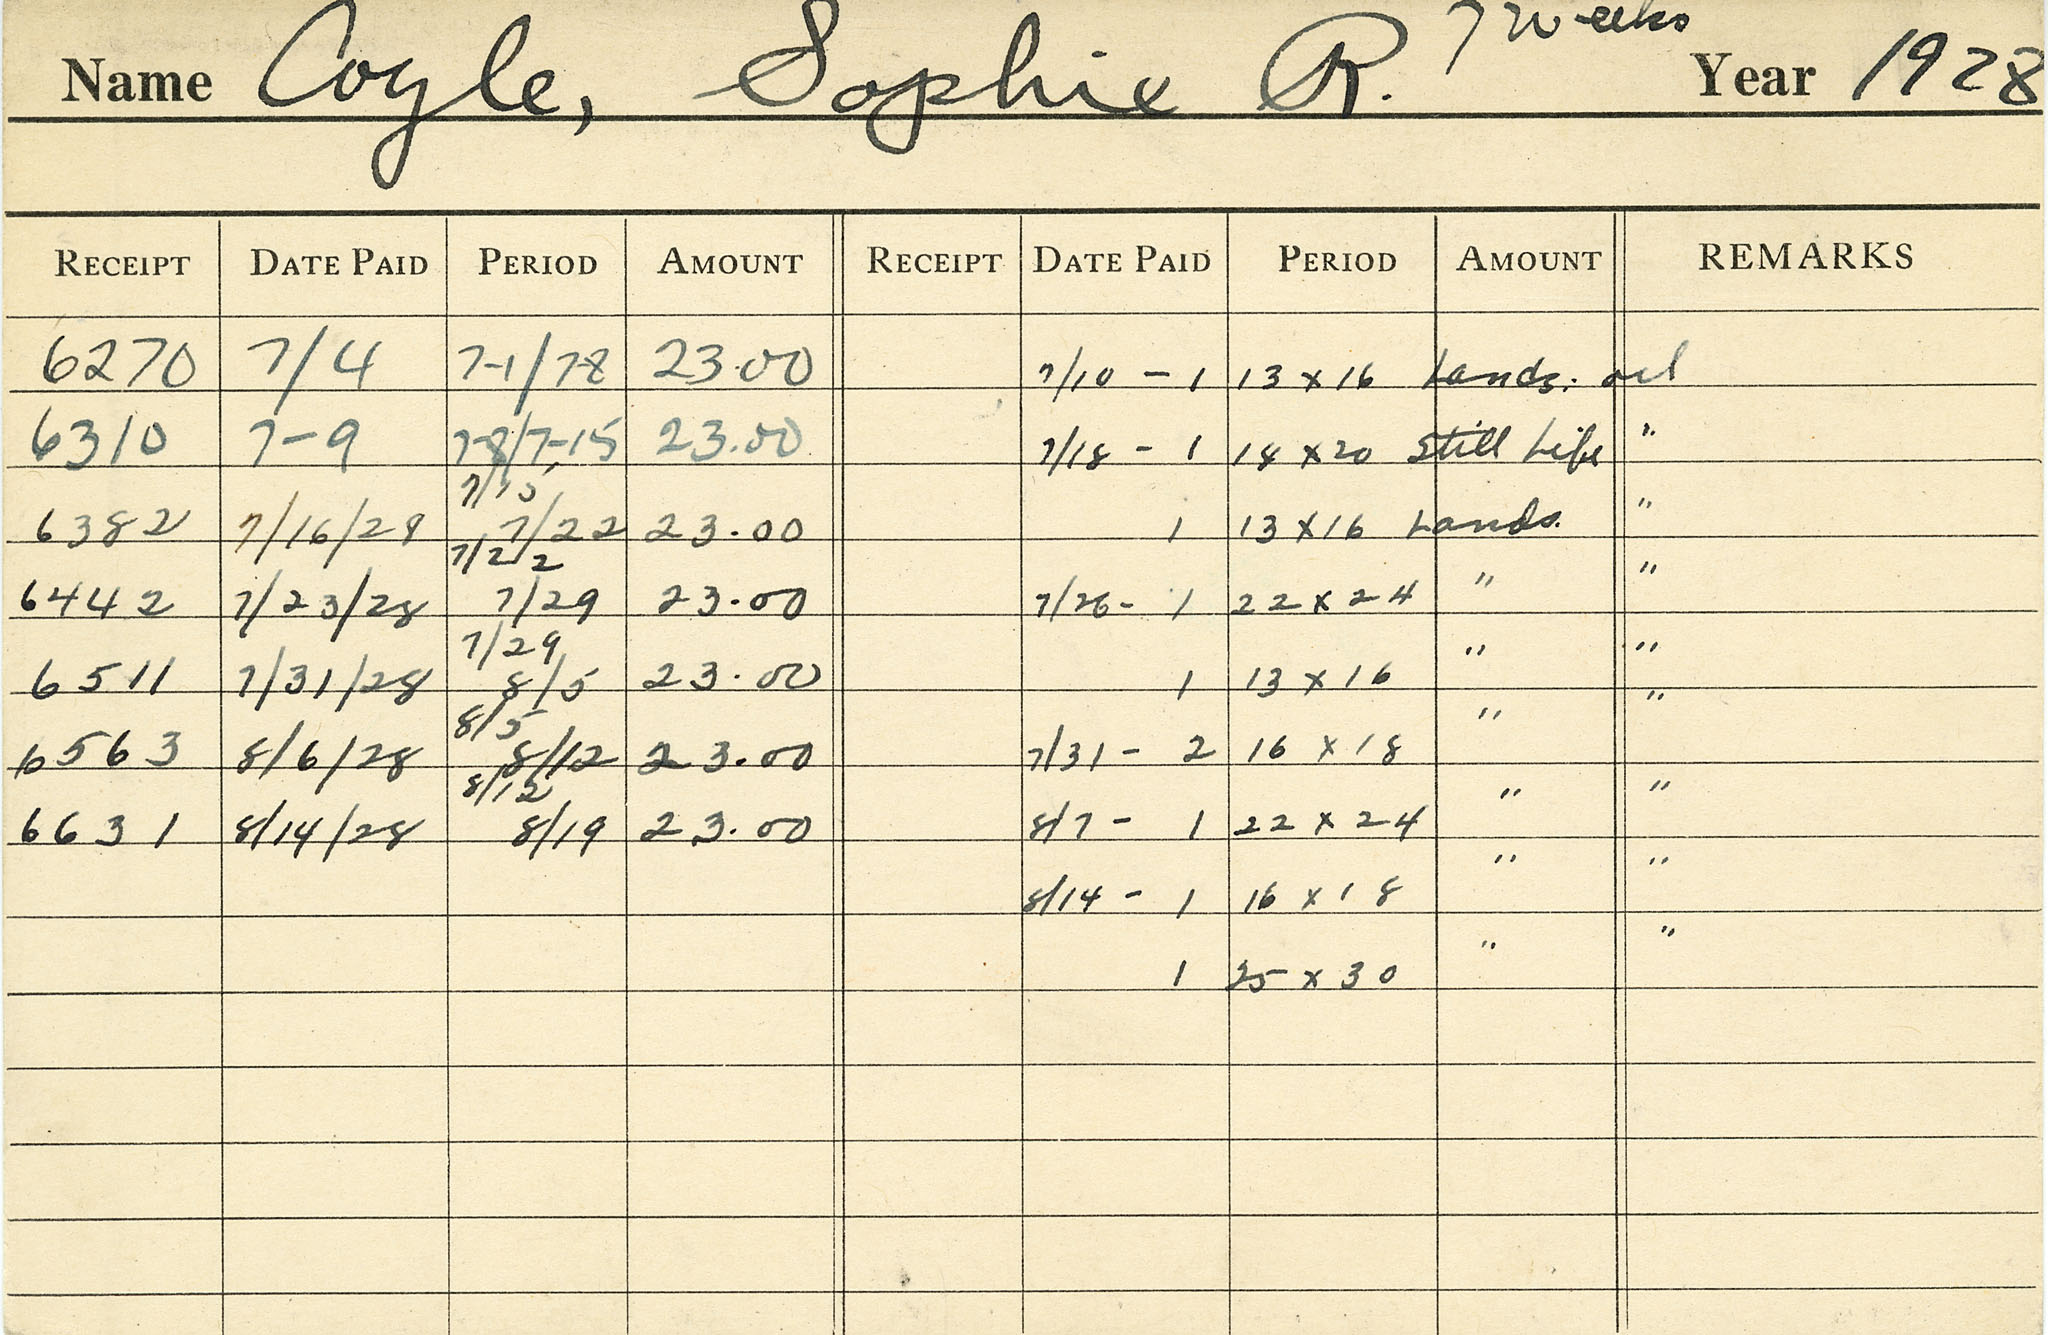 7 Weeks
Name Coyle, Sophie R. Year 1928
RECEIPT DATE PAID PERIOD AMOUNT RECEIPT DATE PAID PERIOD AMOUNT REMARKS
6270 7/4 7-1/7-8 23.00 7/10 - 1 13 x 16 Lands. oil
6310 7-9 7-8/7-15 23.00 7/18 - 1 18 x 20 Still Life "
7/15
6382 7/16/28 7/22 23.00 1 13 x 16 Lands. "
7/22
6442 7/23/28 7/29 23.00 7/26 - 1 22 x 24 " "
7/29
6511 7/31/28 8/5 23.00 1 13 x 16 " "
8/5
6563 8/6/28 8/12 23.00 7/31 - 2 16 x 18 " "
8/12
6631 8/14/28 8/19 23.00 8/7 - 1 22 x 24 " "
8/14 - 1 16 x 18 " "
1 25 x 30 " "